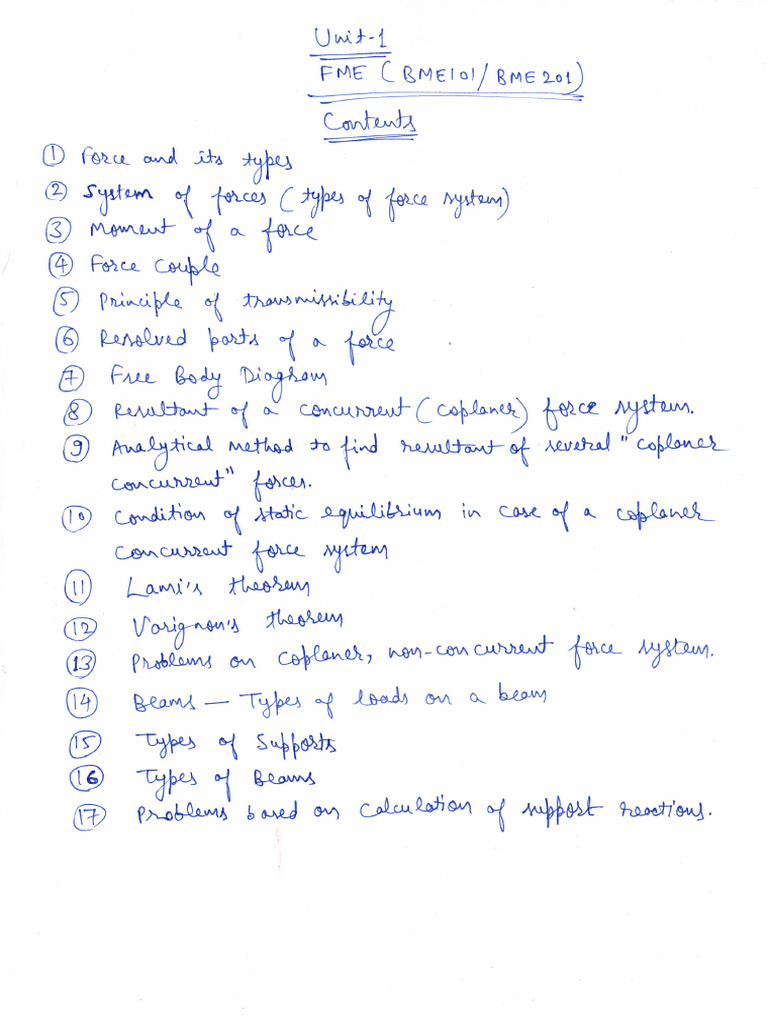 Unit-1
FME (BME101/BME201)
Contents
① Force and its types
② System of forces (types of force system)
③ Moment of a force
④ Force Couple
⑤ Principle of transmissibility
⑥ Resolved parts of a force
⑦ Free Body Diagram
⑧ Resultant of a concurrent (coplaner) force system.
⑨ Analytical method to find resultant of several "coplaner
concurrent" forces.
⑩ Condition of static equilibrium in case of a coplaner
concurrent force system
⑪ Lami's theorem
⑫ Varignon's theorem
⑬ Problems on coplaner, non-concurrent force system.
⑭ Beams — Types of loads on a beam
⑮ Types of Supports
⑯ Types of Beams
⑰ Problems based on calculation of support reactions.